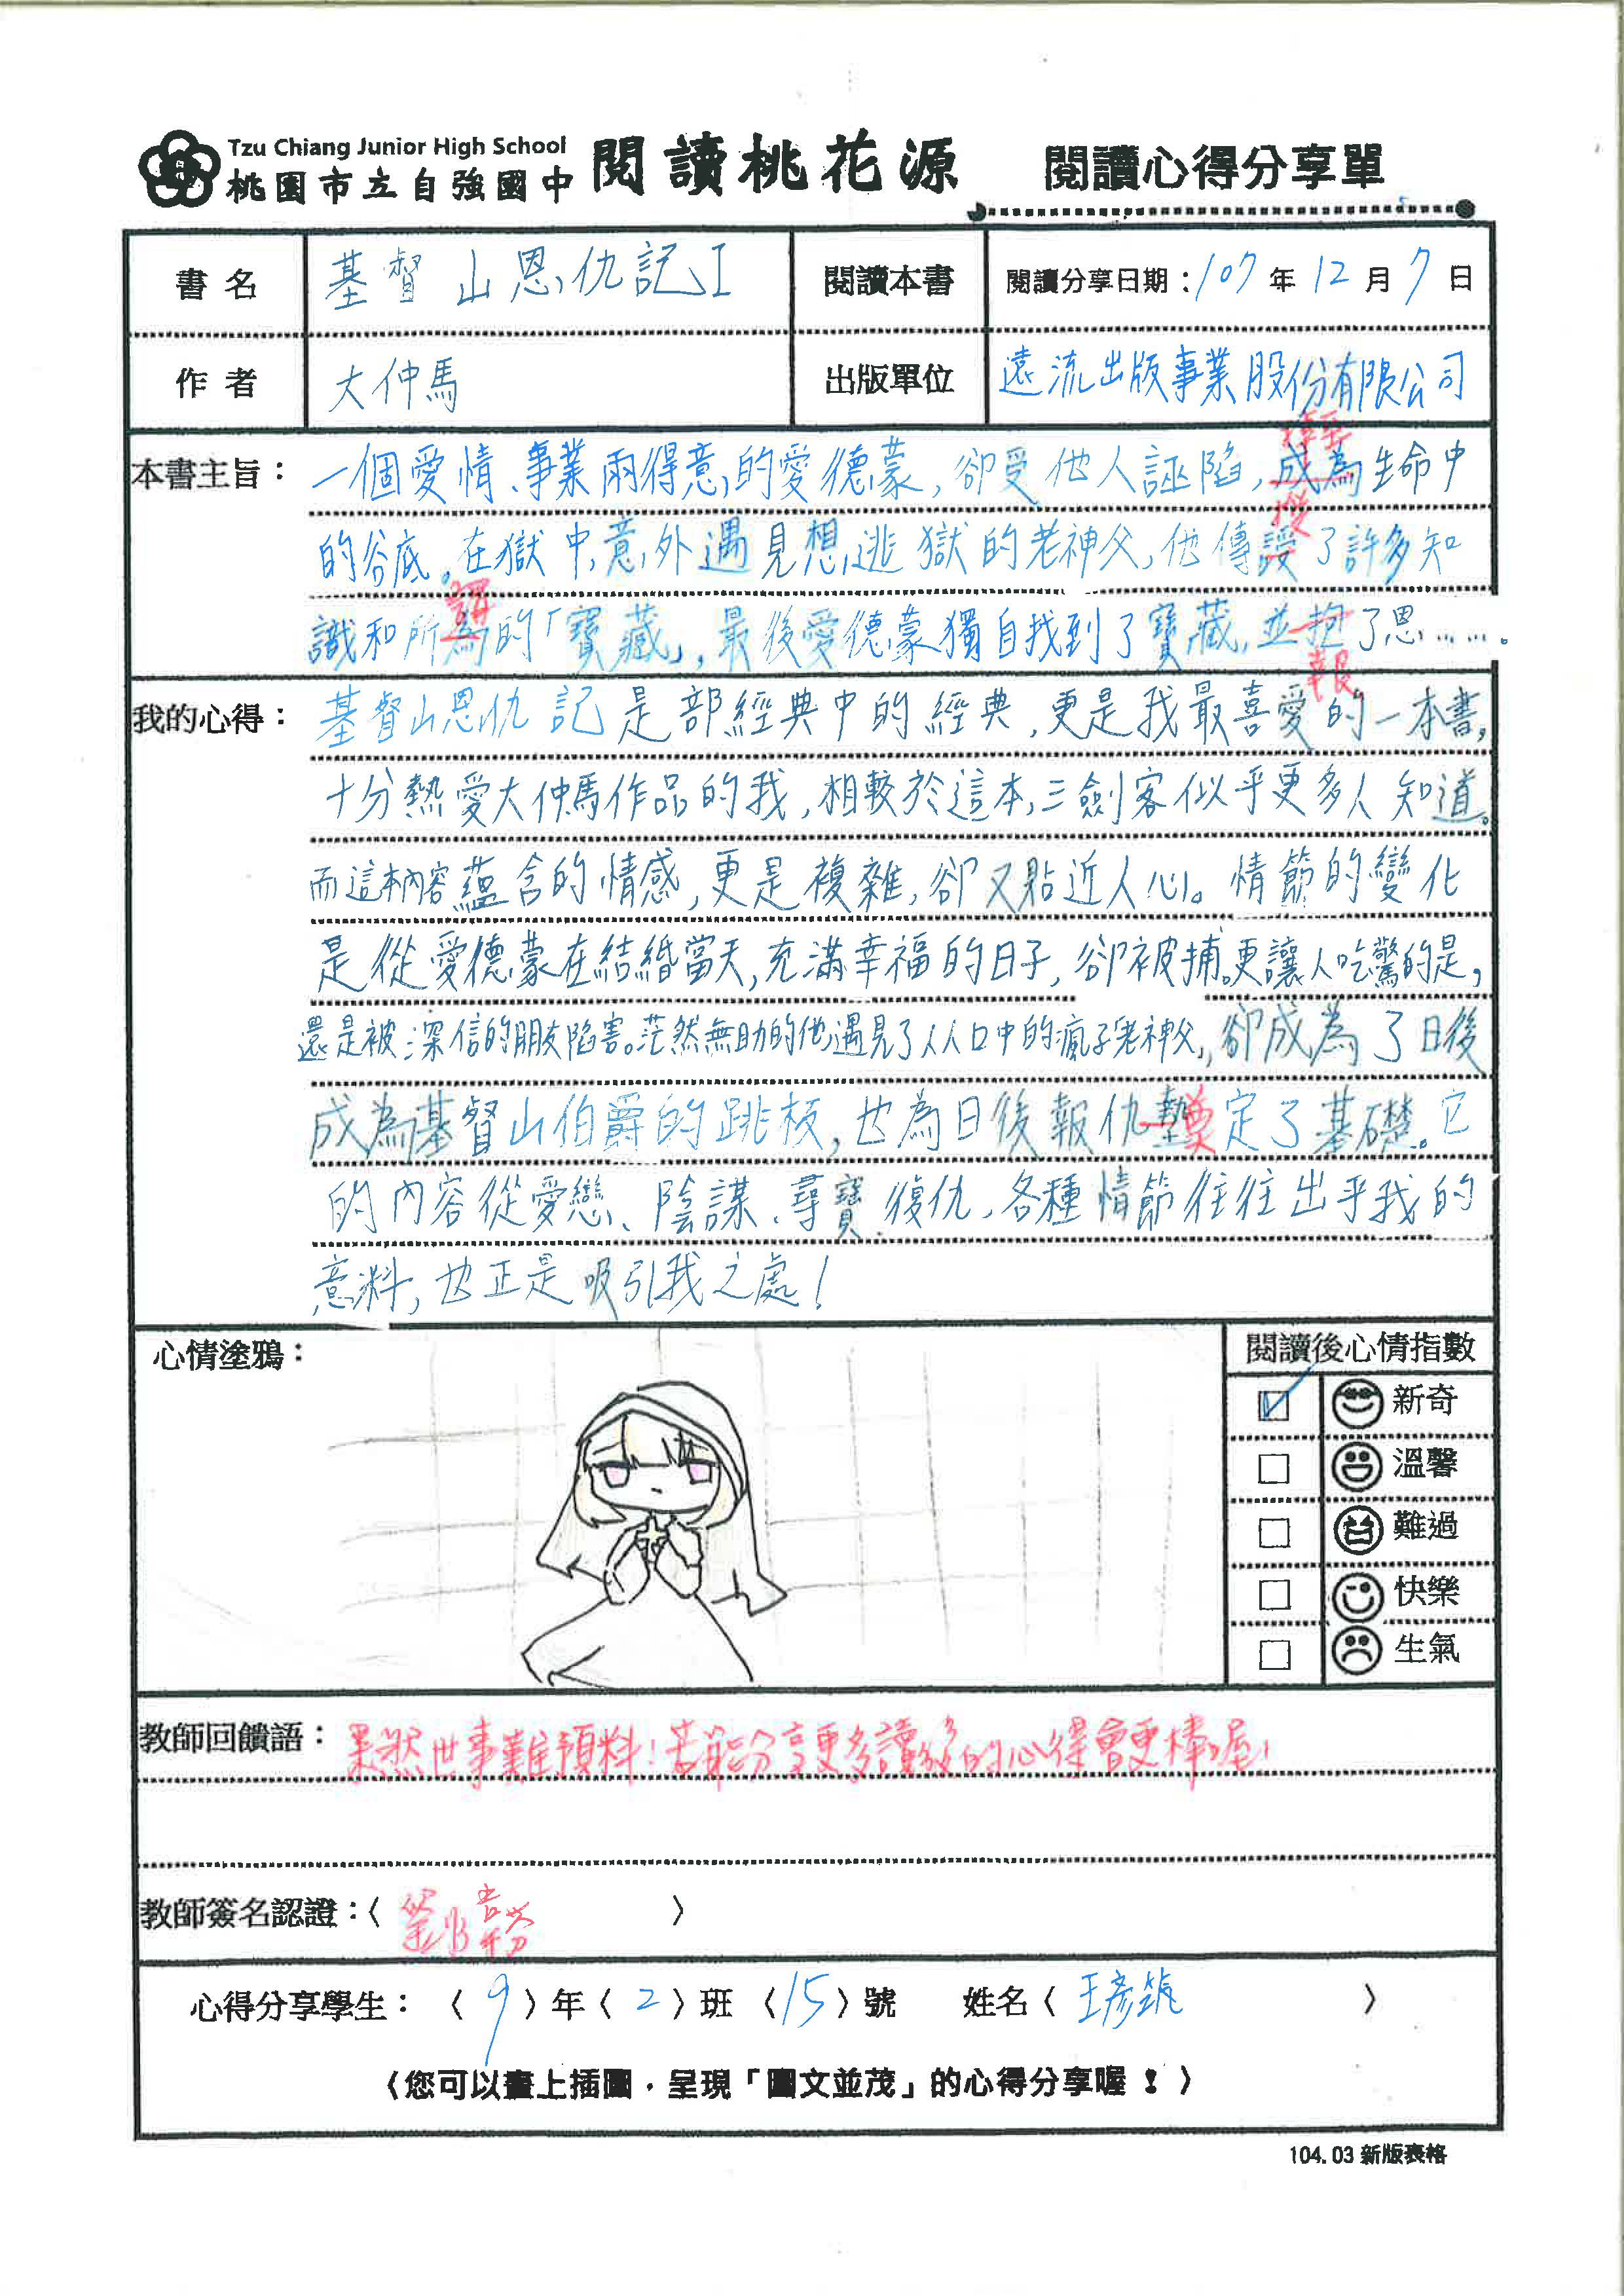 Tzu Chiang Junior High School
桃園市立自強國中 閱讀桃花源 閱讀心得分享單
書名 基督山恩仇記I 閱讀本書 閱讀分享日期：107年12月7日
作者 大仲馬 出版單位 遠流出版事業股份有限公司
本書主旨：一個愛情、事業兩得意的愛德蒙，卻受他人誣陷，成為生命中
的谷底。在獄中，意外遇見想逃獄的老神父，他傳授了許多知
授
識和所為的「寶藏」，最後愛德蒙獨自找到了寶藏，並抱了恩……。
謂
報
我的心得：基督山恩仇記是部經典中的經典，更是我最喜愛的一本書，
十分熱愛大仲馬作品的我，相較於這本，三劍客似乎更多人知道。
而這本內容蘊含的情感，更是複雜，卻又貼近人心。情節的變化
是從愛德蒙在結婚當天，充滿幸福的日子，卻被捕。更讓人吃驚的是，
還是被深信的朋友陷害。茫然無助的他，遇見了人人口中的瘋子老神父，卻成為了日後
成為基督山伯爵的跳板，也為日後報仇墊奠定了基礎。它
的內容從愛戀、陰謀、尋寶、復仇，各種情節往往出乎我的
意料，也正是吸引我之處！
心情塗鴉：
閱讀後心情指數
新奇
溫馨
難過
快樂
生氣
教師回饋語：果然世事難預料！若能分享更多讀後的心得會更棒喔！
教師簽名認證：〈 〉
心得分享學生：〈9〉年〈2〉班〈15〉號 姓名〈王彥筑〉
〈您可以畫上插圖，呈現「圖文並茂」的心得分享喔！〉
104.03新版表格